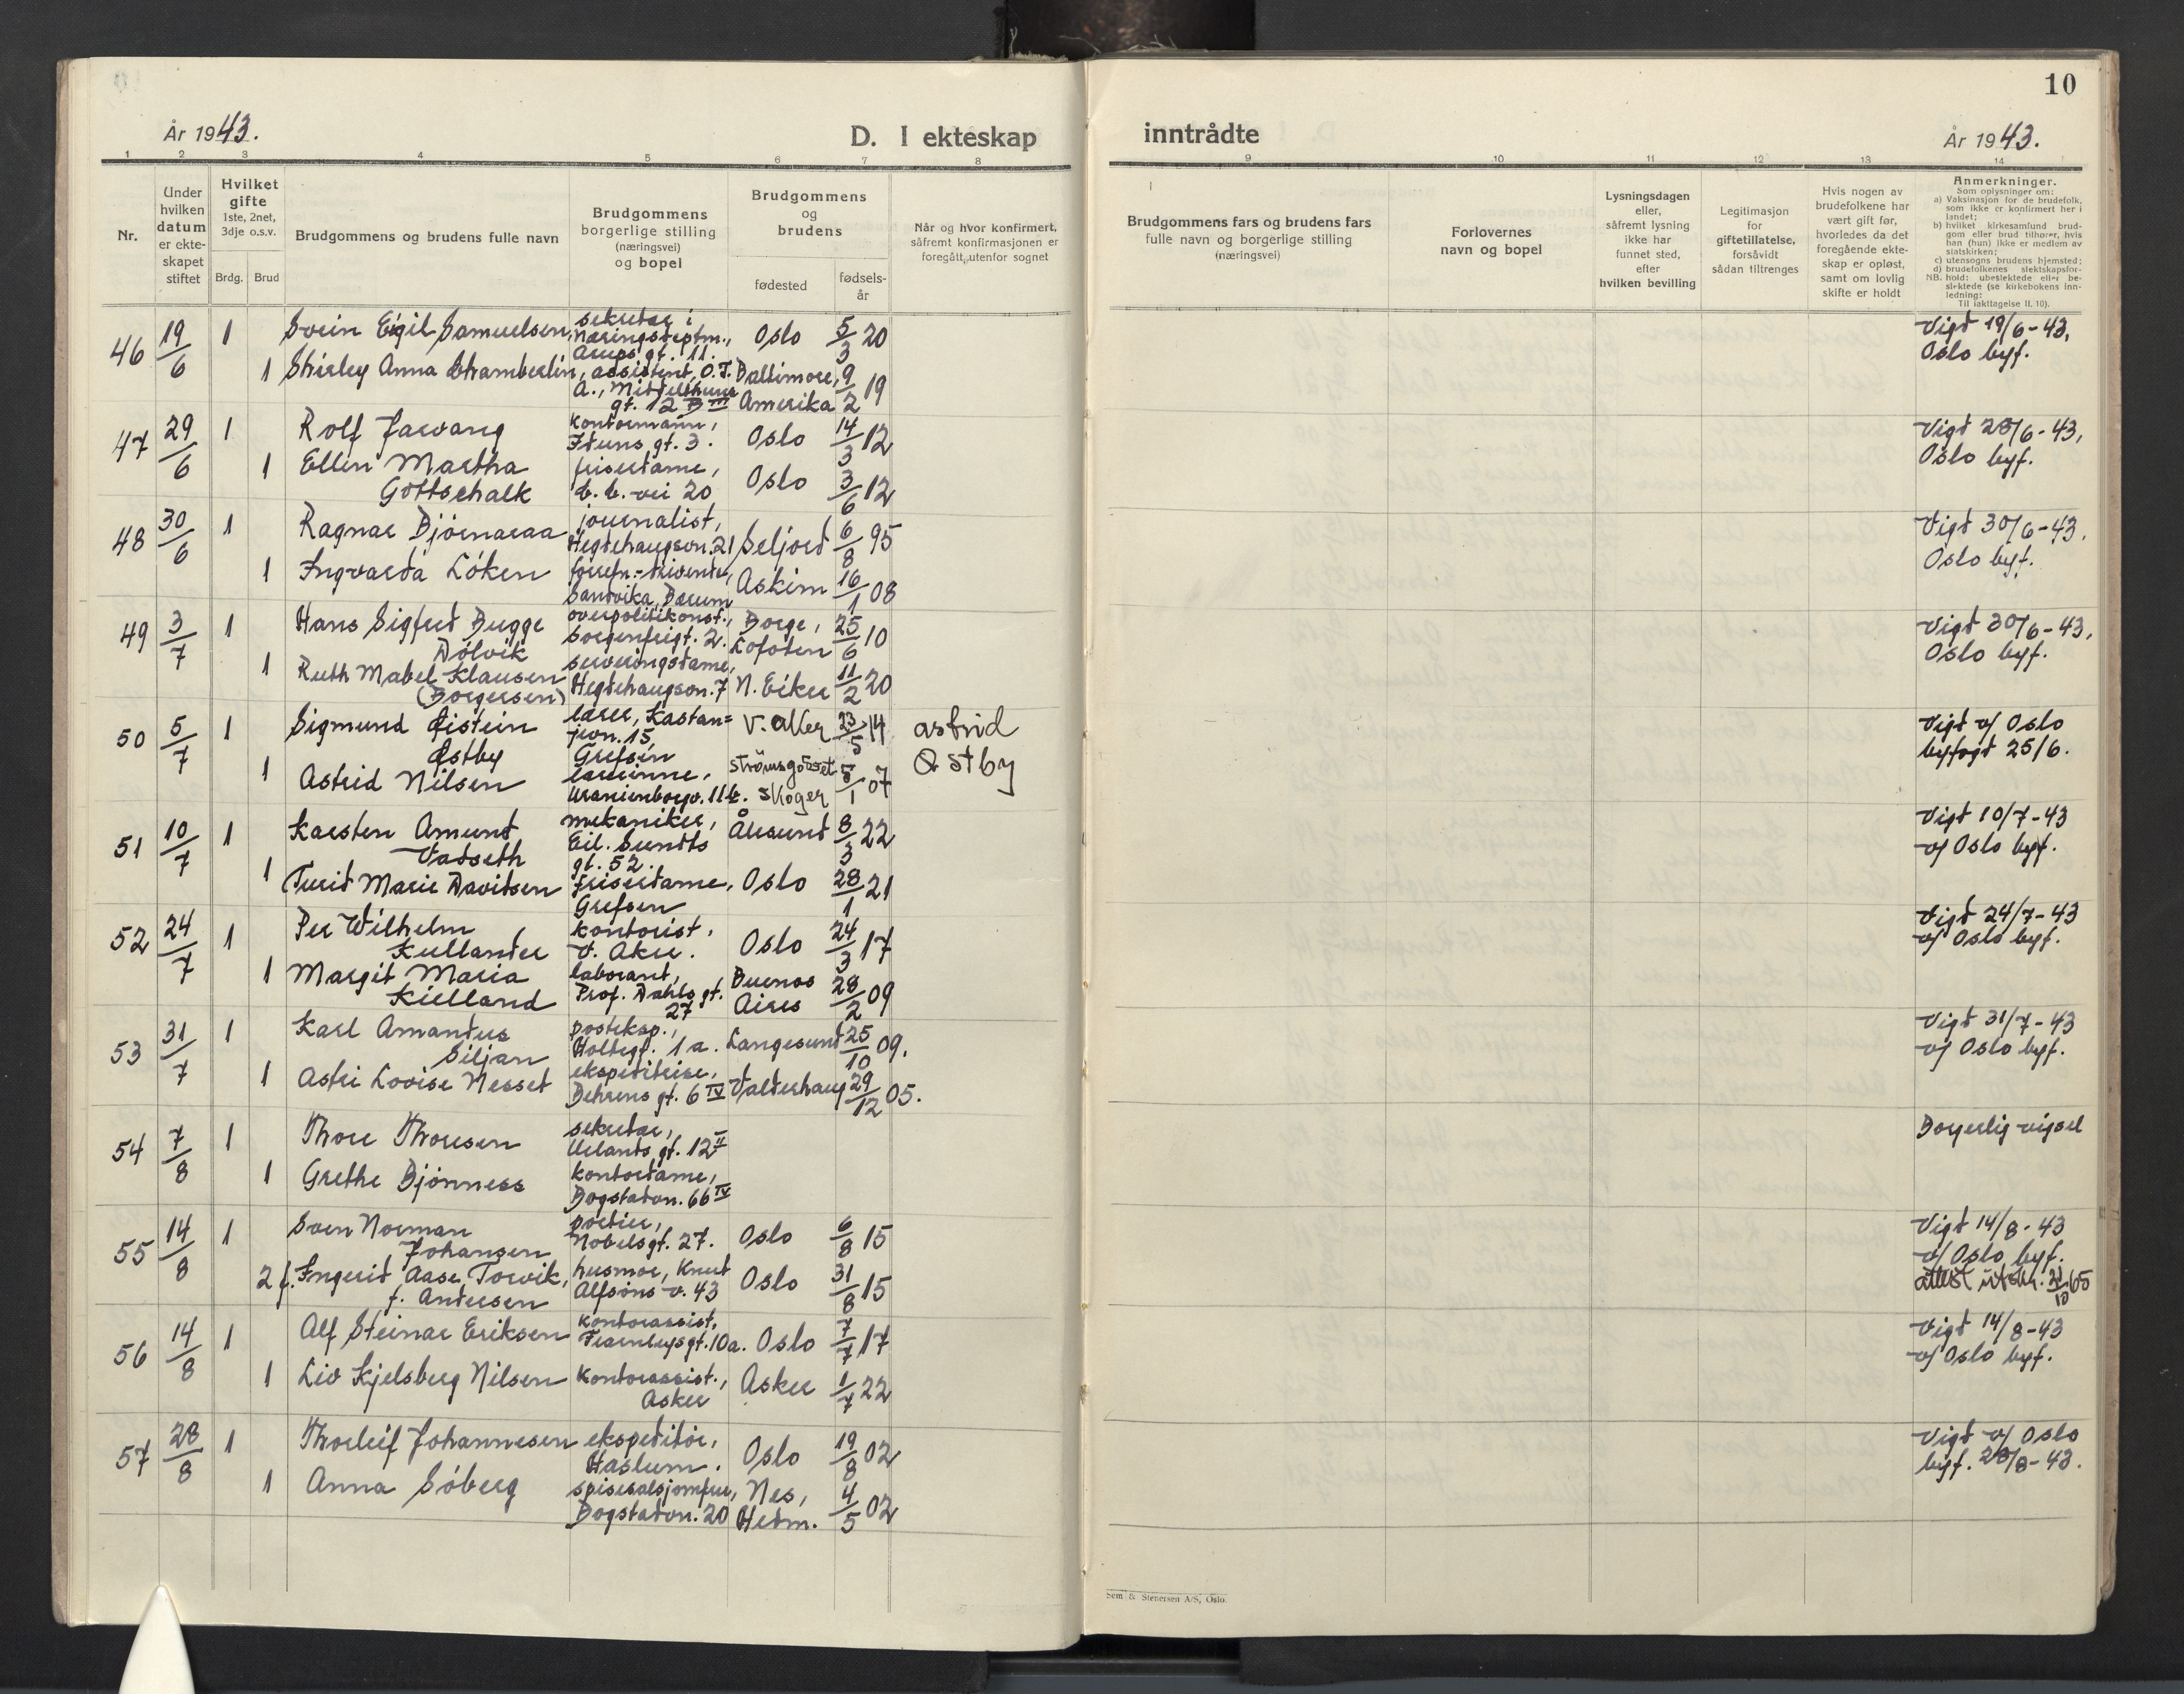 10
År 1943.
D. I ekteskap
inntrådte
År 1943.
1 2 3 4 5 6 7 8 9 10 11 12 13 14
Nr.
Under
hvilken
datum
er ekte-
skapet
stiftet
Hvilket
gifte
1ste, 2net,
3dje o.s.v.
Brdg. Brud
Brudgommens og brudens fulle navn
Brudgommens
borgerlige stilling
(næringsvei)
og bopel
Brudgommens
og
brudens
fødested
fødsels-
år
Når og hvor konfirmert,
såfremt konfirmasjonen er
foregått utenfor sognet
Brudgommens fars og brudens fars
fulle navn og borgerlige stilling
(næringsvei)
Forlovernes
navn og bopel
Lysningsdagen
eller,
såfremt lysning
ikke har
funnet sted,
efter
hvilken bevilling
Legitimasjon
for
giftetillatelse,
forsåvidt
sådan tiltrenges
Hvis nogen av
brudefolkene har
vært gift før,
hvorledes da det
foregående ekte-
skap er opløst,
samt om lovlig
skifte er holdt
Anmerkninger.
Som oplysninger om:
a) Vaksinasjon for de brudefolk,
som ikke er konfirmert her i
landet;
b) hvilket kirkesamfund brud-
gom eller brud tilhører, hvis
han (hun) ikke er medlem av
statskirken;
c) utensogns brudens hjemsted;
d) brudefolkenes slektskapsfor-
NB. hold: ubeslektede eller be-
slektede (se kirkebokens inn-
ledning:
Til iakttagelse II. 10).
46 19/6 1 Svein Eigil Samuelsen, sekretær i
Næringsdeptm.,
Arups gt. 11. Oslo 5/3 20
Vigd 19/6-43,
Oslo byf.
1 Shirley Anna Chamberlin, assistent, O.T.
A., Middelthuns
gt. 12 B III Baltimore,
Amerika 9/2 19
47 29/6 1 Rolf Jarvang kontormann,
Iduns gt. 3. Oslo 14/3 12
Vigd 28/6-43,
Oslo byf.
1 Ellen Martha
Gottschalk friserdame,
t.t. vei 20 Oslo 3/6 12
48 30/6 1 Ragnar Bjørnaraa journalist,
Hegdehaugsvn. 21 Seljord 6/8 95
Vigd 30/6-43,
Oslo byf.
1 Ingvarda Löken forretn.-drivende,
Sandvika, Bærum Askim 16/1 08
49 3/7 1 Hans Sigfred Bugge
Dölvik overpolitikonst.,
Sorgenfrigt. 2. Borge,
Lofoten 25/6 10
Vigd 30/6-43,
Oslo byf.
1 Ruth Mabel Klausen
(Borgersen) serveringsdame,
Hegdehaugsvn. 7 N. Eiker 11/2 20
50 5/7 1 Sigmund Øistein
Østby lærer, Kastan=
jevn. 15,
Grefsen V. Aker 23/5 14 Astrid
Østby
Vigd v/ Oslo
byfogd 25/6.
1 Astrid Nilsen lærerinne,
Uranienborgv. 11 b. Strömsgodset
Skoger 5/1 07
51 10/7 1 Karsten Amund
Vadseth mekaniker,
Eil. Sundts
gt. 52. Ålesund 8/3 22
Vigd 10/7-43
v/ Oslo byf.
1 Turid Marie Davidsen friserdame,
Grefsen Oslo 28/1 21
52 24/7 1 Per Wilhelm
Kullander kontorist,
V. Aker. Oslo 24/3 17
Vigd 24/7-43
v/ Oslo byf.
1 Margit Maria
Kielland laborant,
Prof. Dahls gt.
27 Buenos
Aires 28/2 09
53 31/7 1 Karl Amandus
Siljan posteksp.,
Holtegt. 1 a. Langesund 25/10 09.
Vigd 31/7-43
v/ Oslo byf.
1 Astri Lovise Nesset ekspeditrise,
Behrens gt. 6 IV Valderhaug 29/12 05.
54 7/8 1 Thore Thoresen sekretær,
Uelands gt. 12 II
Borgerlig vigsel
1 Grethe Bjönness kontordame,
Bogstadvn. 66 IV
55 14/8 1 Sven Norman
Johansen portier,
Nobelsgt. 27. Oslo 6/8 15
Vigd 14/8-43
v/ Oslo byf.
attest utskr. 31/10 65
2 f. Ingerid Aase Torvik,
f. Andersen husmor, Knud
Alfsöns v. 43 Oslo 31/8 15
56 14/8 1 Alf Steinar Eriksen kontorassist,
Fearnleysgt. 10a. Oslo 7/7 17
Vigd 14/8-43
v/ Oslo byf.
1 Liv Kjelsberg Nilsen kontorassist.,
Asker Asker 1/7 22
57 28/8 1 Thorleif Johannesen ekspeditör,
Haslum. Oslo 19/8 02
Vigd v/ Oslo
byf. 28/8-43.
1 Anna Söberg spisesalsjomfru,
Bogstadvn. 20 Nes,
Hedm. 4/5 02
Sem & Stenersen A/S, Oslo.